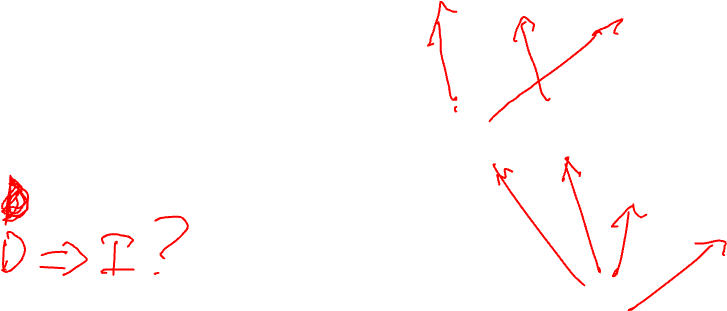 D ⇒ I ?